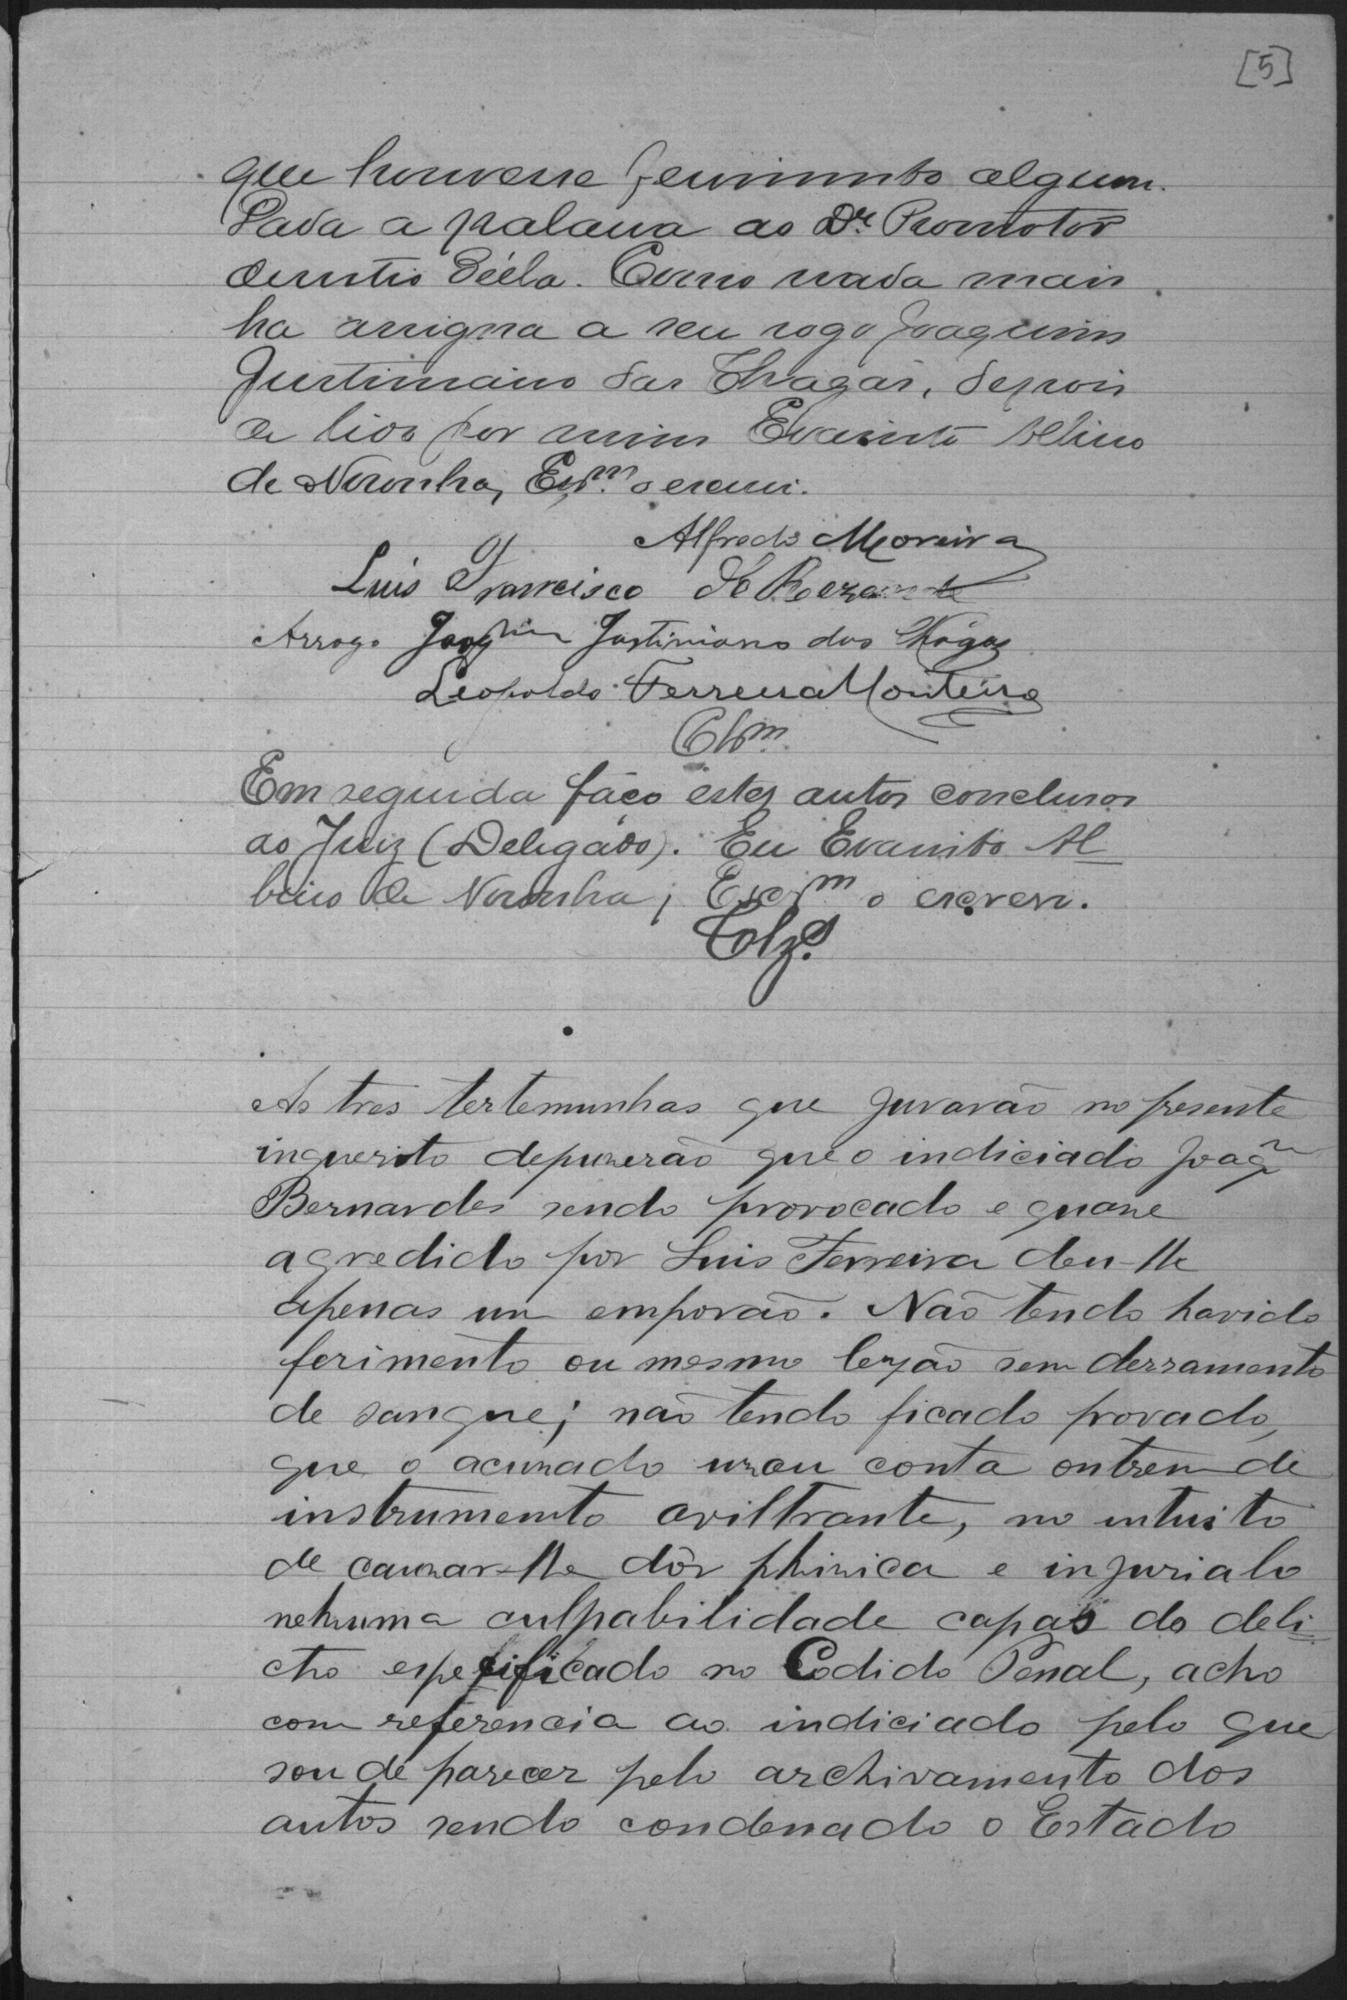 [5]
que houvesse ferimento algum.
Dada a palavra ao Dr. Promotor
desistio della. Como nada mais
ha assigna a seu rogo Joaquim
Justiniano das Chagas, depois
de lido por mim Evaristo Albino
de Noronha, Escm. o escrevi.
Alfredo Moreira
Luis Francisco de Rezende
Arrogo Joaqim Justiniano das Chagas
Leopoldo Ferreira Monteiro
Clsm.
Em seguida faço estes autos conclusos
ao Juiz (Delegado). Eu Evaristo Al
bino de Noronha, Escm o escrevi.
Clzs.
As tres testemunhas que jurarão no presente
inquerito depuzerão que o indiciado Joaqm
Bernardes sendo provocado e quase
agredido por Luis Ferreira deu-lle
apenas um emporão. Não tendo havido
ferimento ou mesmo lezão sem derramento
de sangue; não tendo ficado provado,
que o acuzado uzou conta outrem de
instrumento aviltrante, no intuito
de cauzar-lle dôr phizica e injurialo
nehuma culpabilidade capas do deli
cto espesificado no Codido Penal, acho
com referencia ao indiciado pelo que
sou de parecer pelo archivamento dos
autos sendo condenado o Estado